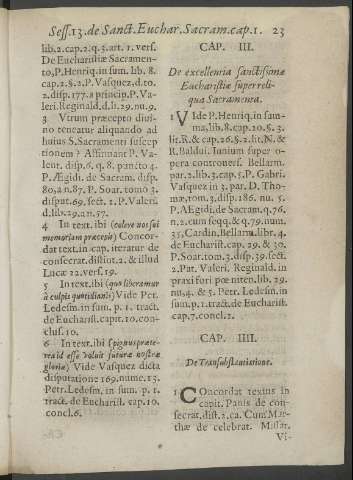 Sess.13. de Sanct. Euchar. Sacram. cap. 1. 23
lib. 2. cap. 2. q. 3. art. 1. vers.
De Eucharistiæ Sacramen-
to, P. Henriq. in sum. lib. 8.
cap. 2. §. 2. P. Vasquez, d. to.
2. disp. 177. a princip. P. Va-
leri. Reginald. d. li. 29. nu. 9.
3 Vtrum præcepto diui-
no teneatur aliquando ad
huius S. Sacramenti suscep
tionem? Affirmant P. Va-
lent. disp. 6. q. 8. puncto 4.
P. Ægidi. de Sacram. disp.
80. a n. 87. P. Soar. tomo 3.
disput. 69. sect. 1. P. Valeri
d. lib. 29. n. 57.
4 In text. ibi (colere nos sui
memoriam præcepit) Concor-
dat text. in cap. iteratur de
consecrat. distiot. 2. & illud
Lucæ 22. vers. 19.
5 In text. ibi (quo liberamur
à culpis quotidianis) Vide Petr.
Ledesm. in sum. p. 1. tract.
de Eucharist. capit. 10. con-
clus. 10.
6 In text. ibi (pignus præte-
rea id esse voluit futuræ nostræ
gloriæ) Vide Vasquez dicta
disputatione 169. nume. 13.
Petr. Ledesm. in sum. p. 1.
tract. de Eucharist. cap. 10.
concl. 6.
CAP. III.
De excellentia sanctissimæ
Eucharistiæ super reli-
qua Sacramenta.
1 VIde P. Henriq. in sum-
ma, lib. 8. cap. 20. §. 3.
lit. R. & cap. 26. §. 2. lit. N. &
R. Baldui. Iunium super o-
pera controuers. Bellarm.
par. 2. lib. 3. cap. 5. P. Gabri.
Vasquez in 3. par. D. Tho-
mæ, tom. 3. disp. 186. nu. 5.
P. AEgidi. de Sacram. q. 76.
n. 2. cum seqq. & q. 79. num.
35. Cardin. Bellar. libr. 4.
de Eucharist. cap. 29. & 30.
P. Soar. tom. 3. disp. 39. sect.
2. Pat. Valeri. Reginald. in
praxi fori pœniten. lib. 29.
nu. 4. & 5. Petr. Ledesm. in
sum. p. 1. tract. de Eucharist.
cap. 7. concl. 2.
CAP. IIII.
De Transubstantiatione.
1 COncordat textus in
capit. Panis de con-
secrat. dist. 2. ca. Cum Mar-
thæ de celebrat. Missar.
Vi-